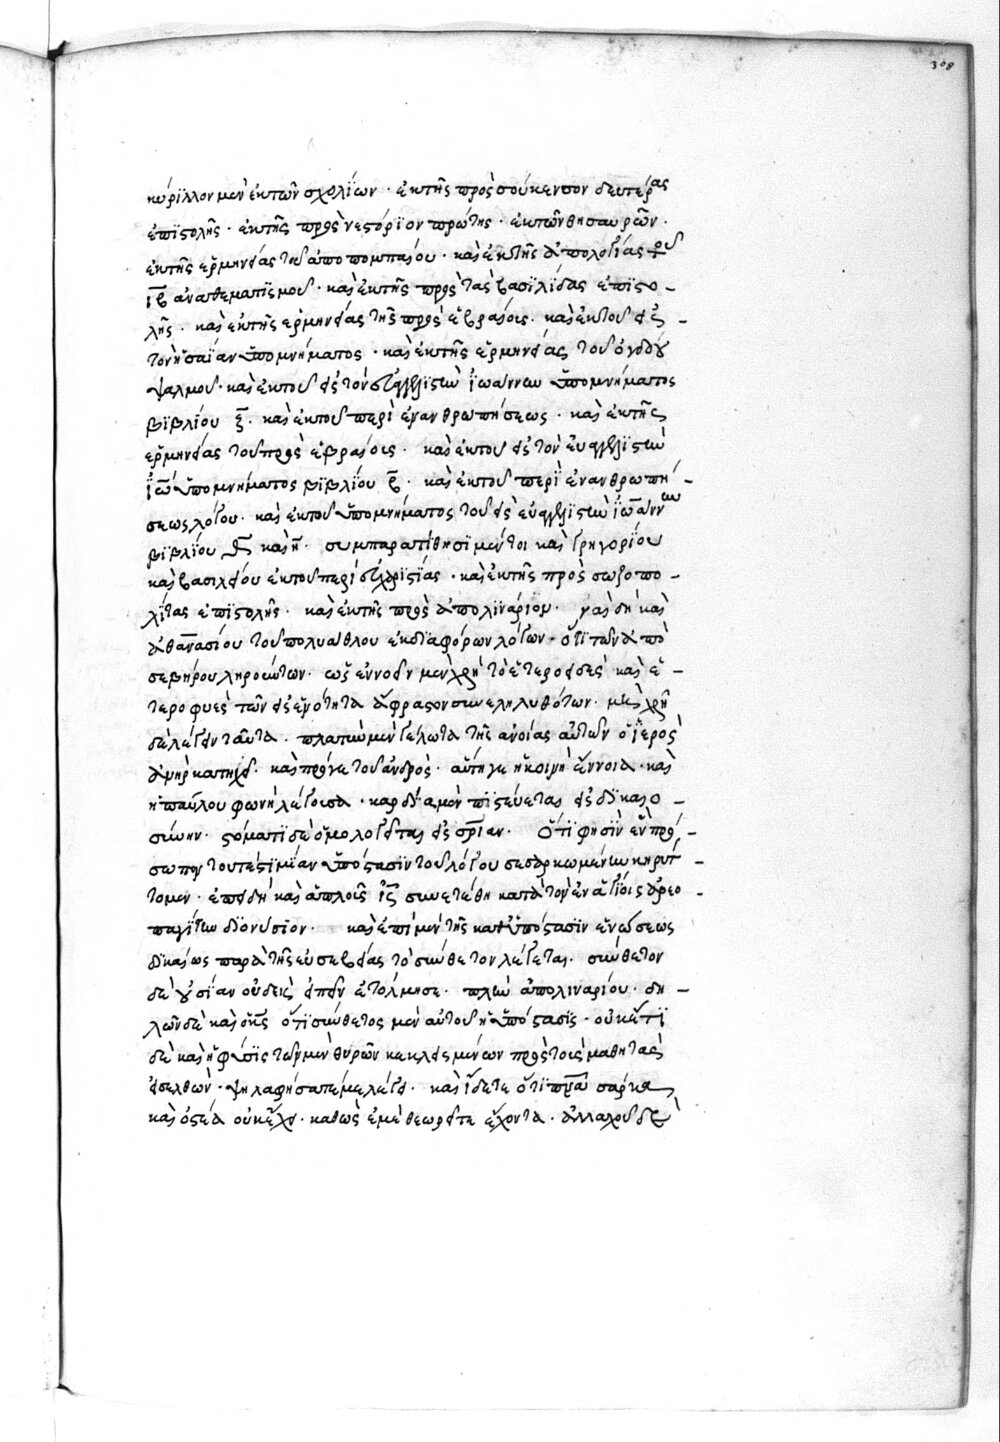 308
κύρϊλλον μεν ἐκ τῶν σχολΐων · ἐκ τῆς πρὸς σούκενσον δευτέρας
ἐπϊστολῆς · ἐκ τῆς πρὸς νεστόρϊον πρώτης · ἐκ τῶν θησαυρῶν ·
ἐκ τῆς ἑρμηνείας τοῦ ἀποπομπαίου · καὶ ἐκ τῆς ἀπολογίας τοῦ
ιβ ἀναθεματισμοῦ · καὶ ἐκ τῆς πρὸς τὰς βασιλΐδας ἐπϊστο –
λῆς · καὶ ἐκ τῆς ἑρμηνείας τῆς πρὸς ἑβραίοις · καὶ ἐκ τοῦ εἰς –
τὸν ἠσαΐαν ὑπομνήματος · καὶ ἐκ τῆς ἑρμηνείας τοῦ ὀγδόου
ψαλμοῦ · καὶ ἐκ τοῦ εἰς τὸν εὐαγγελϊστὴν ϊωάννην ὑπομνήματος
βϊβλίου ξ · καὶ ἐκ τοῦ περὶ ἐνανθρωπήσεως · καὶ ἐκ τῆς
ἑρμηνείας τοῦ πρὸς ἑβραίοις · καὶ ἐκ τοῦ εἰς τὸν εὐαγγελϊστὴν
ϊῶ ὑπομνήματος βϊβλΐου β · καὶ ἐκ τοῦ περῒ ἐνανθρωπή –
σεως λόγου · καὶ ἐκ τοῦ ὑπομνήματος τοῦ εἰς εὐαγγελϊστὴν ϊωάννην
βϊβλΐου καὶ η · συμπαρατίθησϊ μέντοι καὶ γρηγορΐου
καὶ βασιλείου ἐκ τοῦ περὶ εὐχαρϊστίας · καὶ ἐκ τῆς πρὸς σωζοπο –
λΐτας ἐπϊστολῆς · καὶ ἐκ τῆς πρὸς ἀπολϊνάριον · ναὶ δὴ καὶ
ἀθανασίου τοῦ πολυάθλου ἐκ διαφόρων λόγων · ὅτϊ τῶν ἀπὸ
σεβήρου ληρούντων · ὡς ἐννοεῖν μὲν χρὴ τὸ ἑτεροειδὲς καὶ ἑ –
τεροφυὲς τῶν εἰς ἑνότητα ἄφραστον συνεληλυθότων · μὴ χρῆ
δὲ λέγειν ταῦτα · πλατὺν μὲν γέλωτα τῆς ἀνοίας αὐτῶν ὁ ϊερὸς
ἀνὴρ καταχεῖ · καὶ πρό γε τοῦ ἀνδρὸς · αὐτή γε ἡ κοινὴ ἔννοια · καὶ
ἡ παύλου φωνὴ λέγουσα · καρδΐα μὲν πϊστεύεται εἰς δϊκαιο –
σύνην · στόματϊ δὲ ὁμολογεῖται εἰς σρΐαν · Ὅτϊ φησὶν ἓν πρό –
σωπον τουτέστϊ μΐαν ὑπόστασϊν τοῦ λόγου σεσαρκωμένην κηρύτ –
τομεν · ἐπειδὴ καὶ ἁπλοῦς ις συνετέθη κατὰ τὸν ἐν ἁγΐοις ἀρεο –
παγΐτην δϊονύσϊον · καὶ ἐπὶ μὲν τῆς καθ ὑπόστασϊν ἑνώσεως
δϊκαίως παρὰ τῆς εὐσεβείας τὸ σύνθετον λέγεται · σύνθετον
δὲ οὐσίαν οὐδεὶς εἰπεῖν ἐτόλμησε · πλὴν ἀπολιναρίου · δη –
λῶν δὲ καὶ ὅτϊ σύνθετος μὲν αὐτοῦ ἡ ὑπόστασϊς · οὐκέτϊ
δὲ καὶ ἡ φύσϊς τῶν μὲν θυρῶν κεκλεισμένων πρὸς τοὺς μαθητὰς
εἰσελθών · ψηλαφήσατέ με λέγει · καὶ ἴδετε ὅτϊ πνᾶ σάρκα
καὶ ὀστέα οὐκ ἔχει · καθὼς ἐμὲ θεωρεῖτε ἔχοντα · ἀλλαχοῦ δὲ